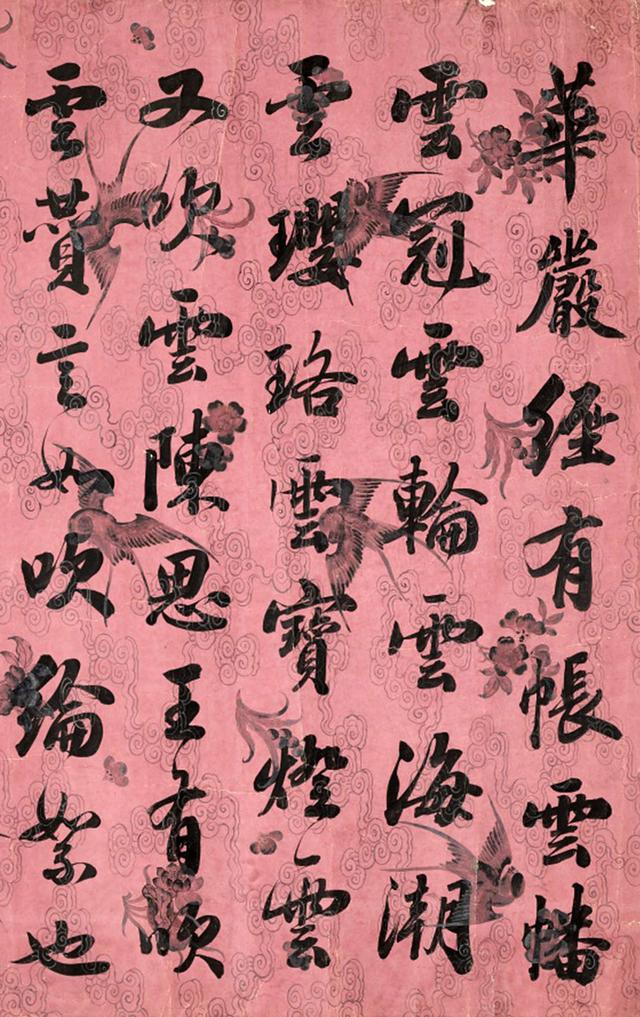 華嚴經有帳雲幡
雲冠雲輪雲海潮
雲瓔珞雲寶燈雲
又吹雲陳思王有吹
雲贊言如吹綸絮也